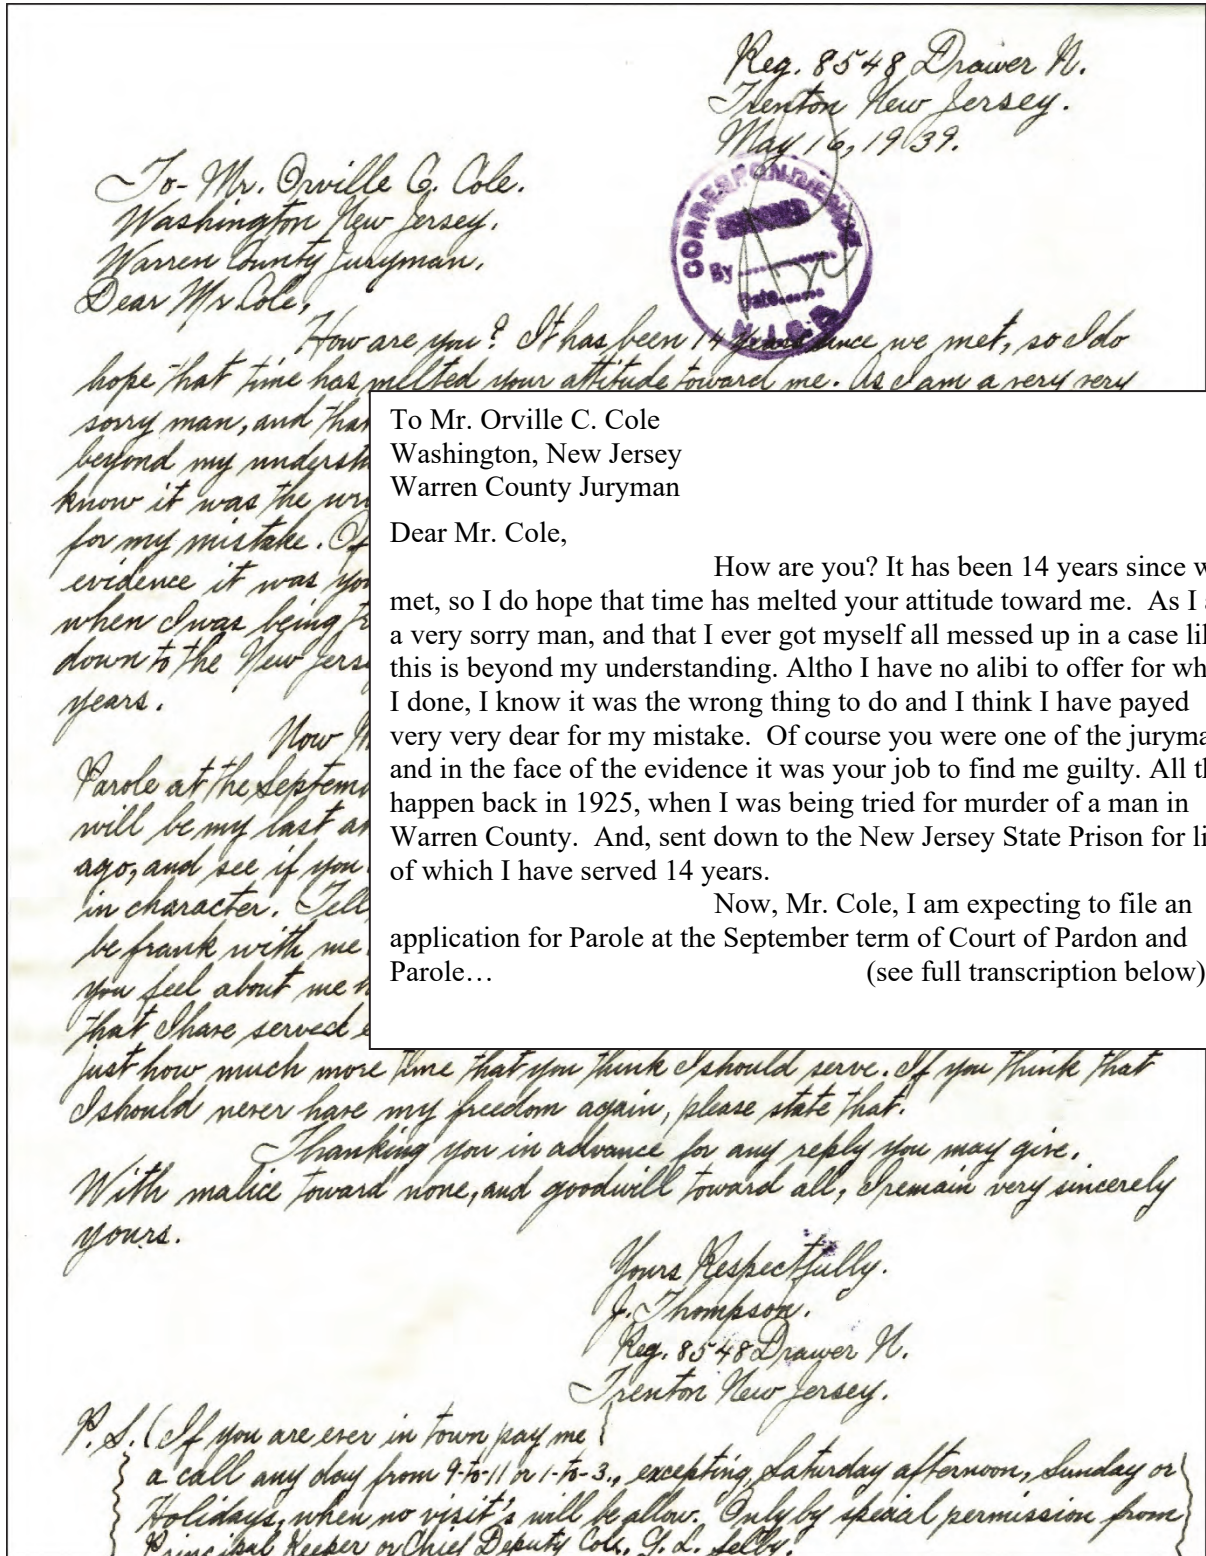 Reg. 8548 Drawer N.
Trenton New Jersey.
May 16, 1939.
To- Mr. Orville C. Cole.
Washington New Jersey.
Warren County Juryman.
Dear Mr Cole,
CORRESPONDENCE
By
Date
How are you? It has been 14 years since we met, so I do
hope that time has melted your attitude toward me. As I am a very very
sorry man, and that
beyond my understa
know it was the wro
for my mistake. Of
evidence it was you
when I was being tr
down to the New Jerse
years.
Now M
Parole at the Septemb
will be my last an
ago, and see if you
in character. Tell
be frank with me
you feel about me n
that I have served e
just how much more time that you think I should serve. If you think that
I should never have my freedom again, please state that.
Thanking you in advance for any reply you may give.
With malice toward none, and goodwill toward all, I remain very sincerely
yours.
Yours Respectfully.
J. Thompson.
Reg. 8548 Drawer N.
Trenton New Jersey.
P.S. (If you are ever in town pay me
a call any day from 9-to-11 or 1-to-3., excepting, Saturday afternoon, Sunday or
Holidays, when no visit's will be allow. Only by special permission from
Principal Keeper or Chief Deputy Col. G. L. Selby.
To Mr. Orville C. Cole
Washington, New Jersey
Warren County Juryman
Dear Mr. Cole,
How are you? It has been 14 years since w
met, so I do hope that time has melted your attitude toward me.  As I a
a very sorry man, and that I ever got myself all messed up in a case lik
this is beyond my understanding. Altho I have no alibi to offer for wh
I done, I know it was the wrong thing to do and I think I have payed
very very dear for my mistake.  Of course you were one of the juryma
and in the face of the evidence it was your job to find me guilty. All th
happen back in 1925, when I was being tried for murder of a man in
Warren County.  And, sent down to the New Jersey State Prison for li
of which I have served 14 years.
Now, Mr. Cole, I am expecting to file an
application for Parole at the September term of Court of Pardon and
Parole… (see full transcription below)